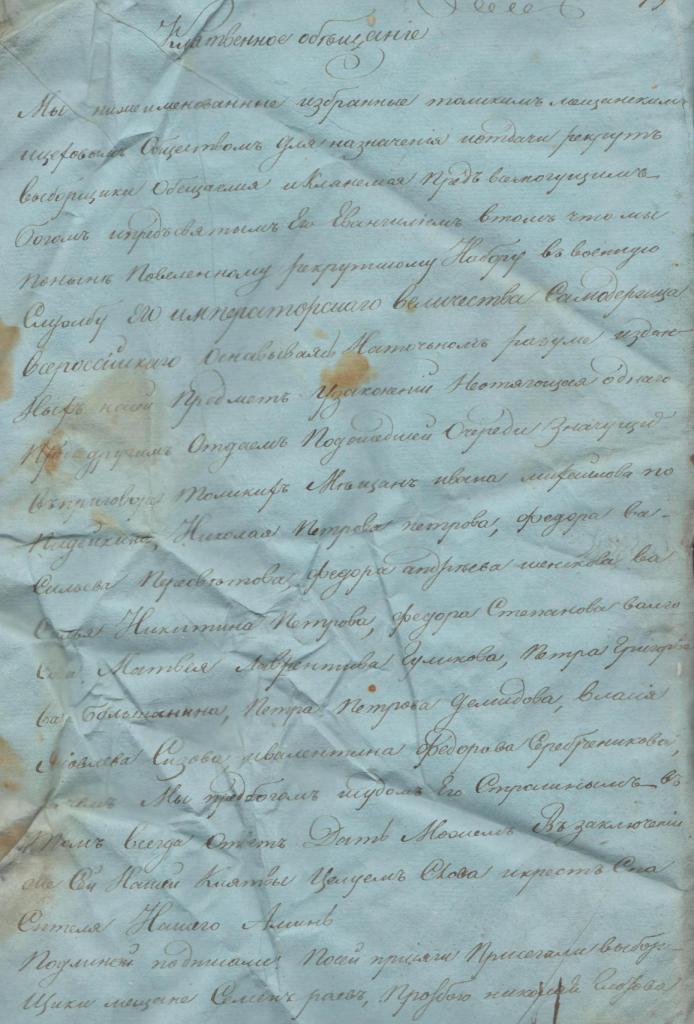 Клятвенное обѣщанiе
Мы нижеименованные избранные томскимъ мещанскимъ
ицеховымъ Обществомъ для назначенiя иотдачи рекрутъ
выборщики Обещаемся иКланемся Предъ всемогущимъ
Богомъ ипредъсвятымъ Его Евангилiемъ втомъ что мы
Поныне Повеленному рекрутскому Набору въ военную
Службу ЕГО императорскаго величества Самодержца
Всероссiйскаго Основываясь Наточномъ разуме издан-
ныхъ насей Предметъ Узаконенiй Неотягощая однаго
Предъдругимъ Отдаемъ Подошедшей Очереди Значущих
въприговоре Томскихъ Мещанъ ивана михаилова по
Николая Петрова петрова, федора ва-
сильева федора андреева ва
силья Никитина Петрова, федора Степанова волго
Матвея Лаврентьева Гуликова, Петра Григорье
ва Большанина, Петра Петрова Демидова, власiя
Яковлева Сизова, ивалентина Федорова Серебреникова,
вчемъ Мы предбогомъ исудомъ Его Страшнымъ въ
томъ всегда Ответъ Дать Можемъ Въ заключенiи
же Сей Нашей Клятвы Целуемъ Слова икрестъ Спа
Сителя Нашего Аминь
Подлинной подписали Посей присяги Присегали выбор-
щики мещане Семенъ раевъ, Прозбою николай